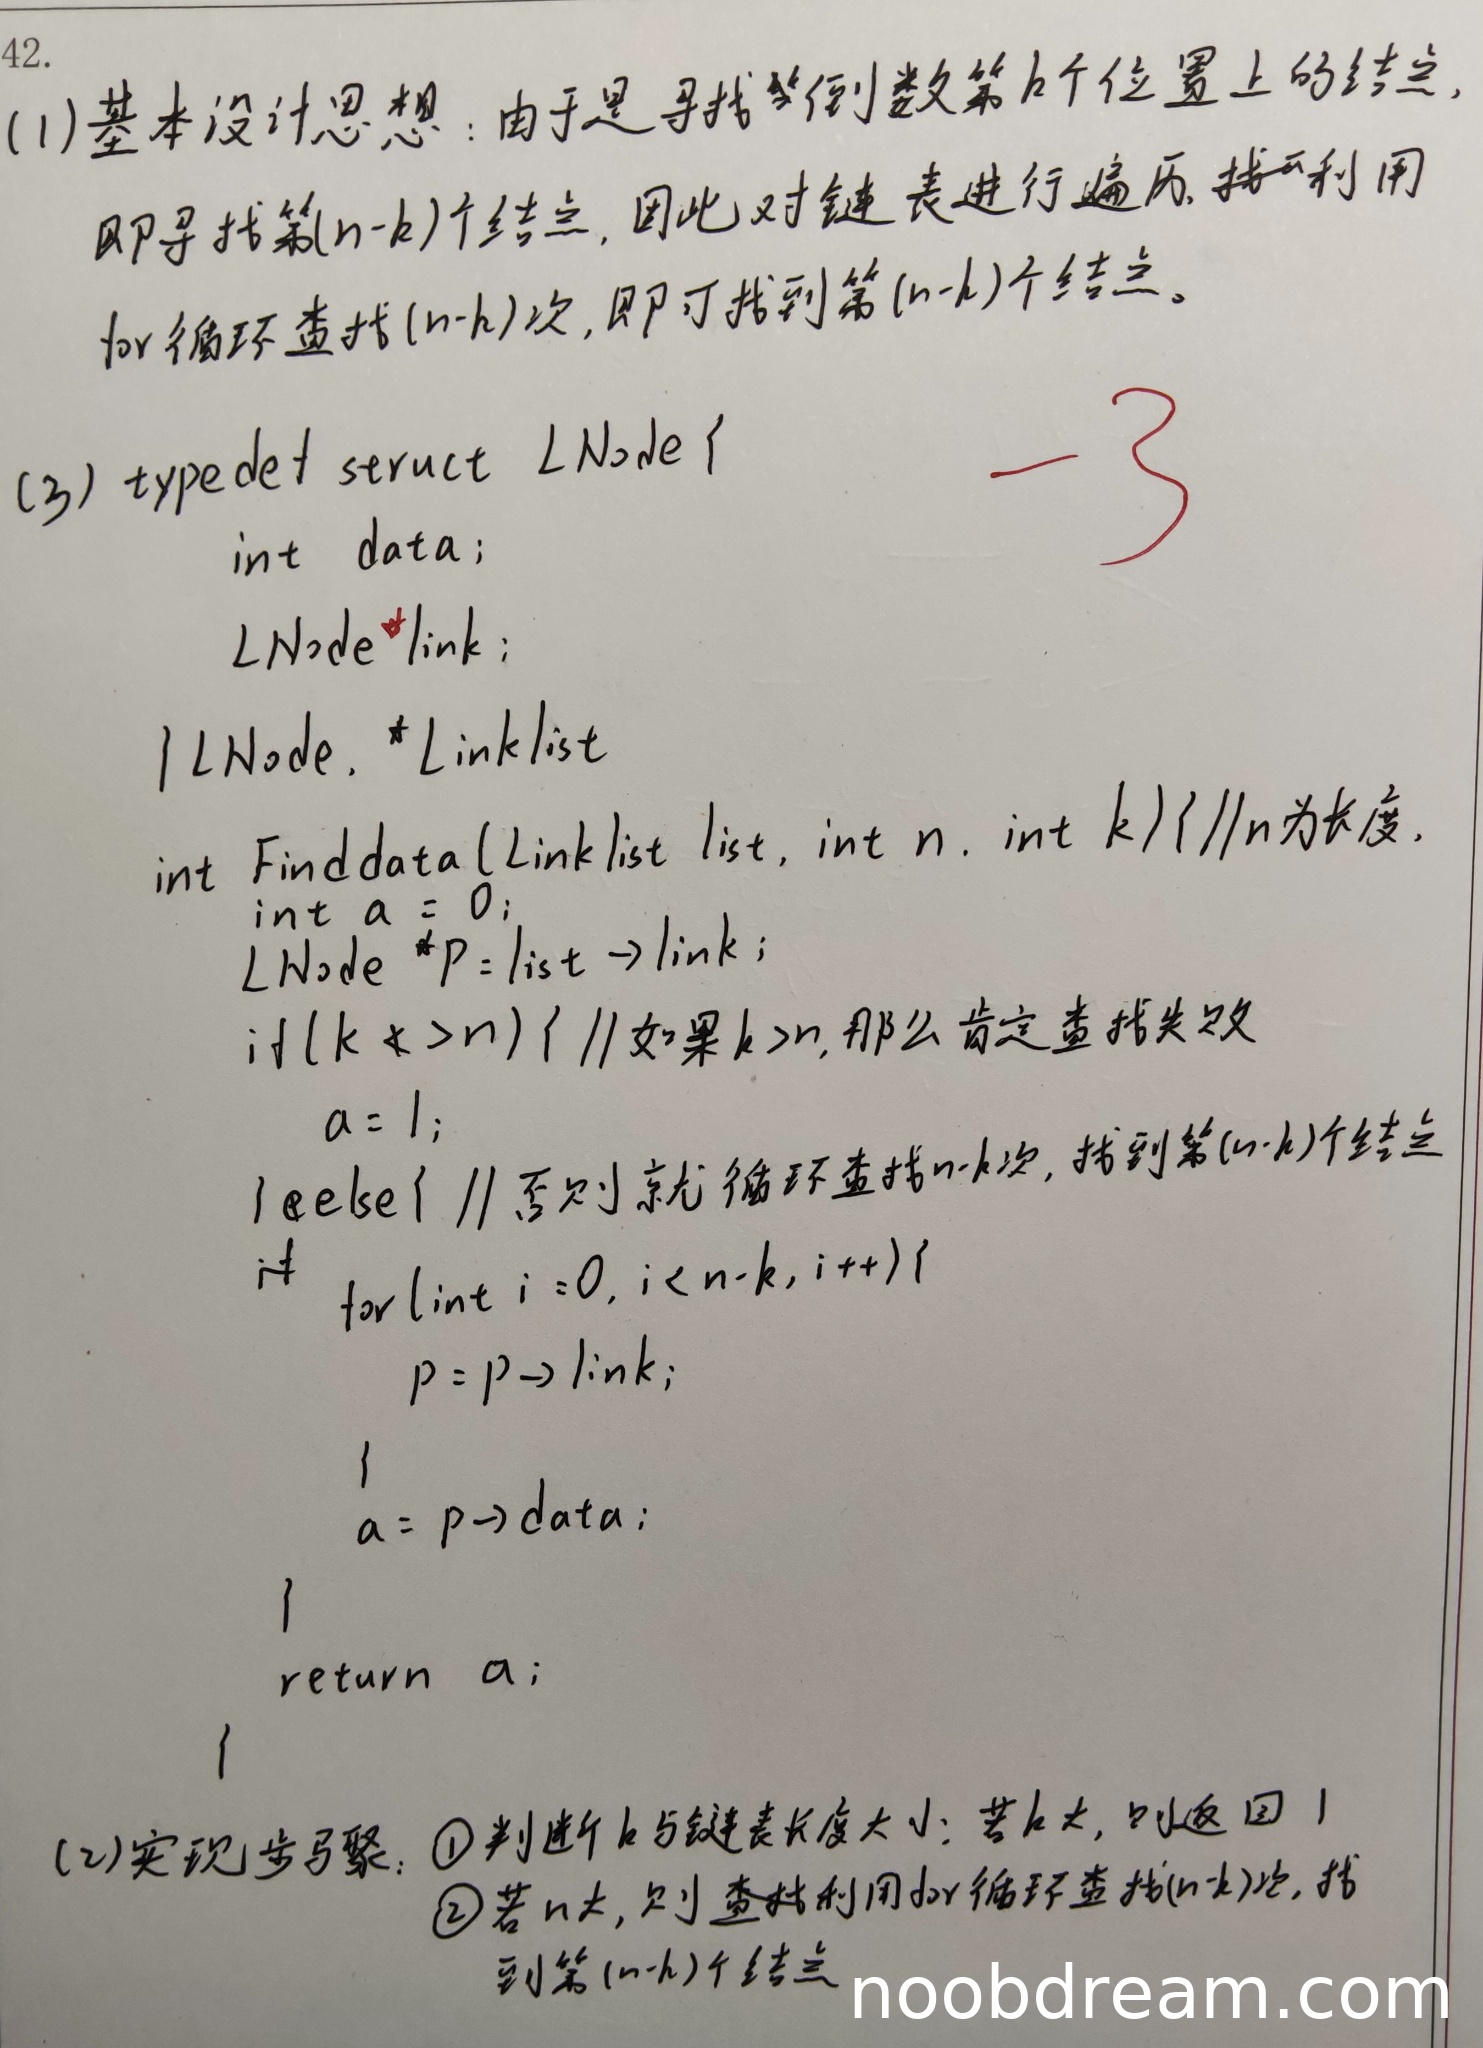 42.
(1)基本设计思想：由于是寻找倒数第k个位置上的结点，
即寻找第(n-k)个结点，因此对链表进行遍历，利用
for循环查找(n-k)次，即可找到第(n-k)个结点。
-3
(3) typedef struct LNode {
int data;
LNode *link;
} LNode, *Linklist
int Finddata(Linklist list, int n, int k) { //n为长度,
int a = 0;
LNode *p = list -> link;
if (k > n) { //如果k>n,那么肯定查找失败
a = 1;
} else { //否则就循环查找n-k次，找到第(n-k)个结点
for (int i = 0, i < n-k, i++) {
p = p -> link;
}
a = p -> data;
}
return a;
}
(2)实现步骤：①判断k与链表长度大小：若k大，则返回1
②若n大，则利用for循环查找(n-k)次，找
到第(n-k)个结点
noobdream.com